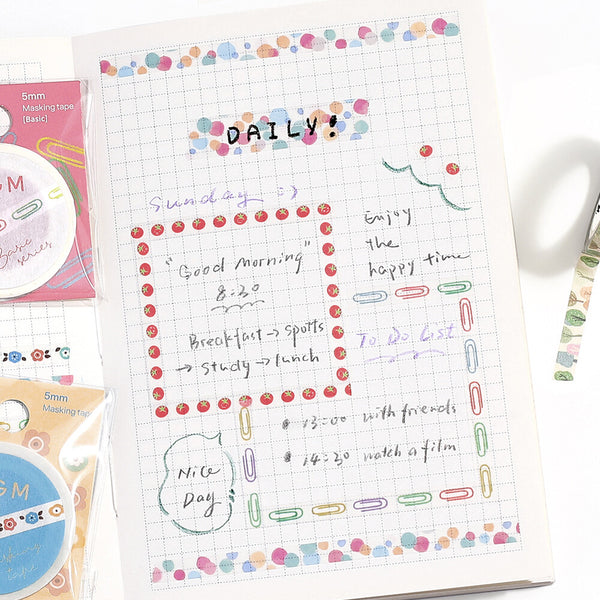 5mm
Masking tape
[Basic]
GM
Basic
series
5mm
Masking tape
GM
masking
tape
DAILY!
Sunday :)
"Good Morning"
8:30
Breakfast → spotts
→ study → lunch
Enjoy
the
happy time
To Do List
13:00 with friends
14:30 watch a film
Nice
Day